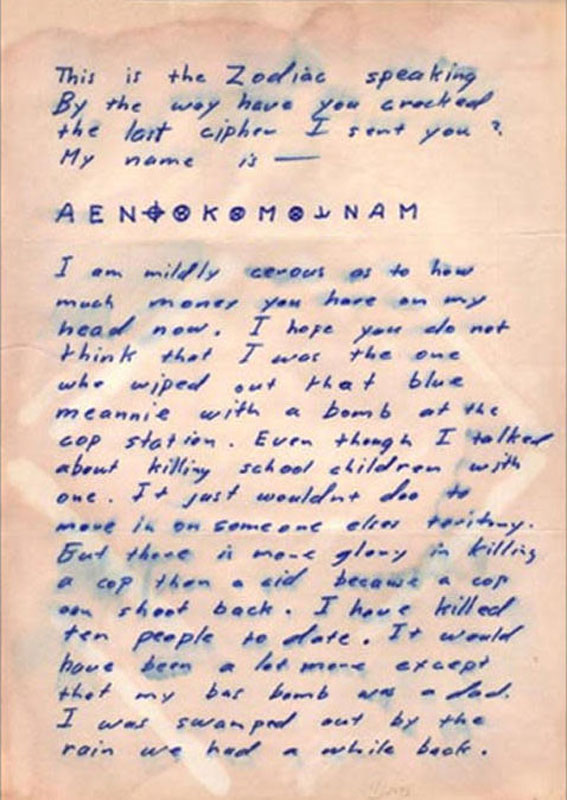 This is the Zodiac speaking
By the way have you cracked
the last cipher I sent you?
My name is —
A E N ⌖ ⊗ K ⊗ M ⊗ ⅃ N A M
I am mildly cerous as to how
much money you have on my
head now. I hope you do not
think that I was the one
who wiped out that blue
meannie with a bomb at the
cop station. Even though I talked
about killing school children with
one. It just wouldnt doo to
move in on someone elses teritory.
But there is more glory in killing
a cop than a cid because a cop
can shoot back. I have killed
ten people to date. It would
have been a lot more except
that my bus bomb was a dud.
I was swamped out by the
rain we had a while back.